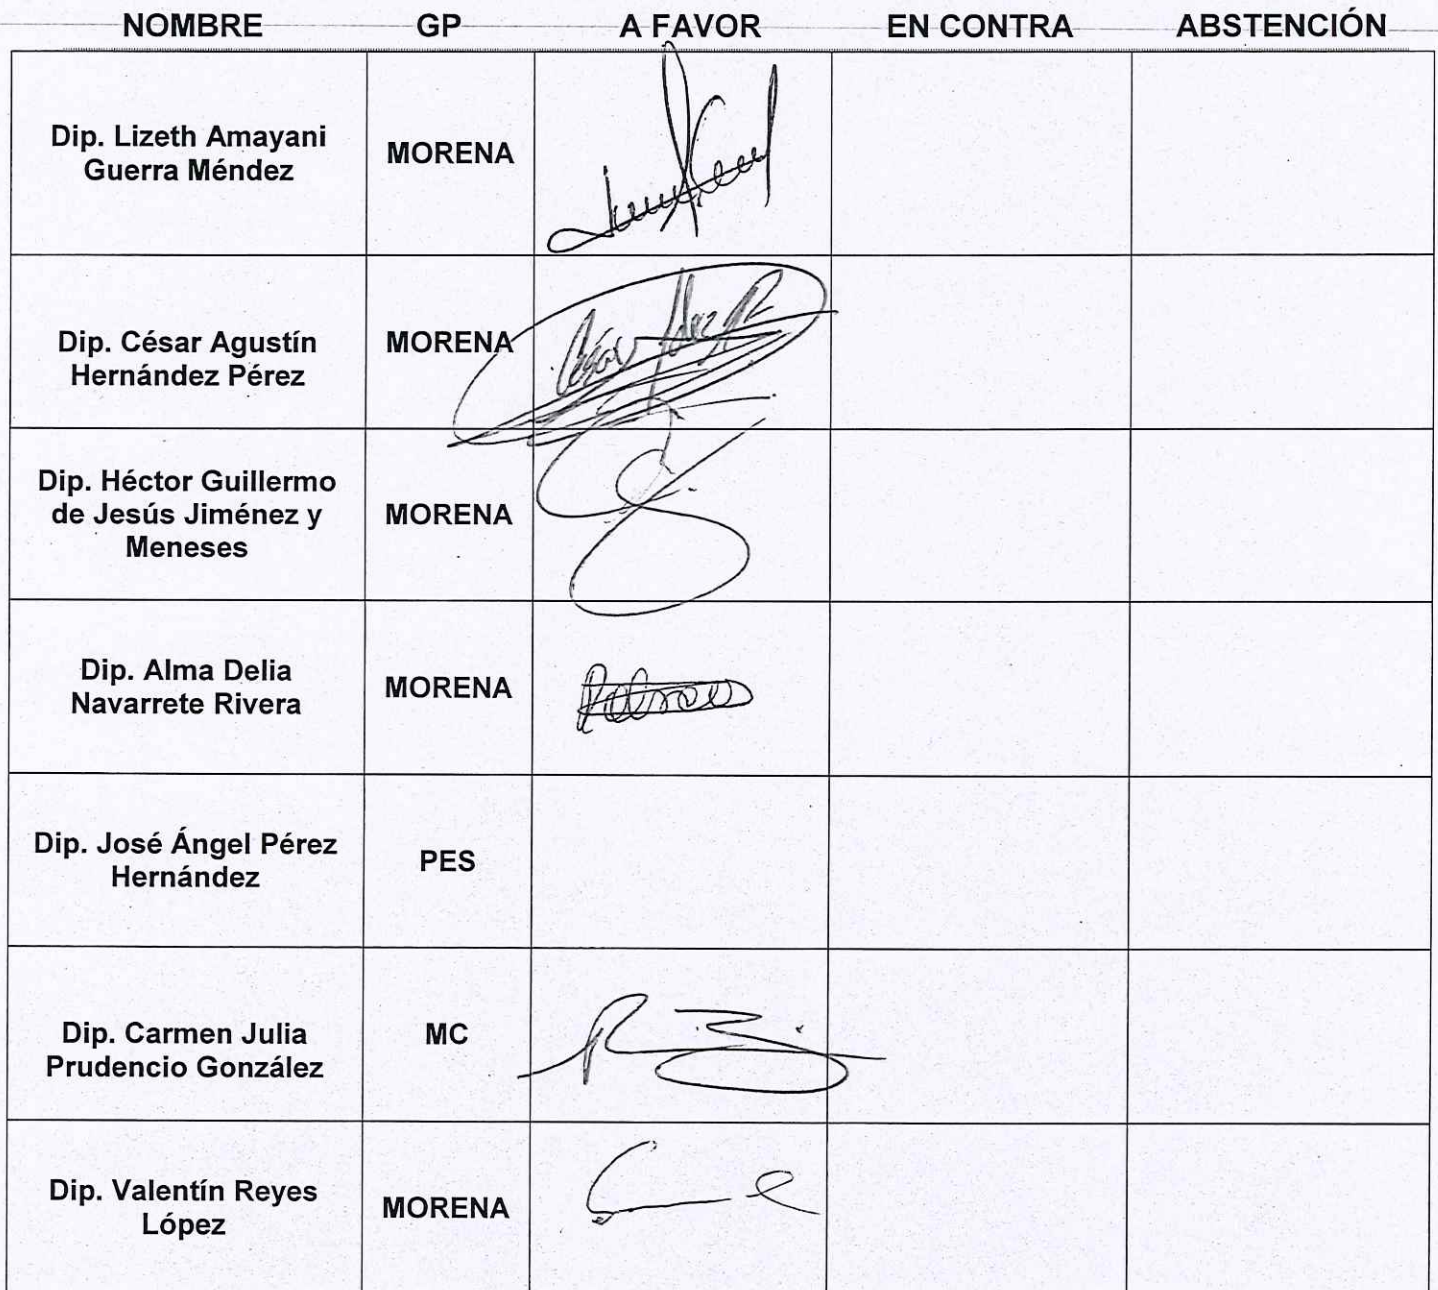 NOMBRE GP A FAVOR EN CONTRA ABSTENCIÓN
Dip. Lizeth Amayani
Guerra Méndez
MORENA
Dip. César Agustín
Hernández Pérez
MORENA
César
Dip. Héctor Guillermo
de Jesús Jiménez y
Meneses
MORENA
Dip. Alma Delia
Navarrete Rivera
MORENA
Dip. José Ángel Pérez
Hernández
PES
Dip. Carmen Julia
Prudencio González
MC
Dip. Valentín Reyes
López
MORENA